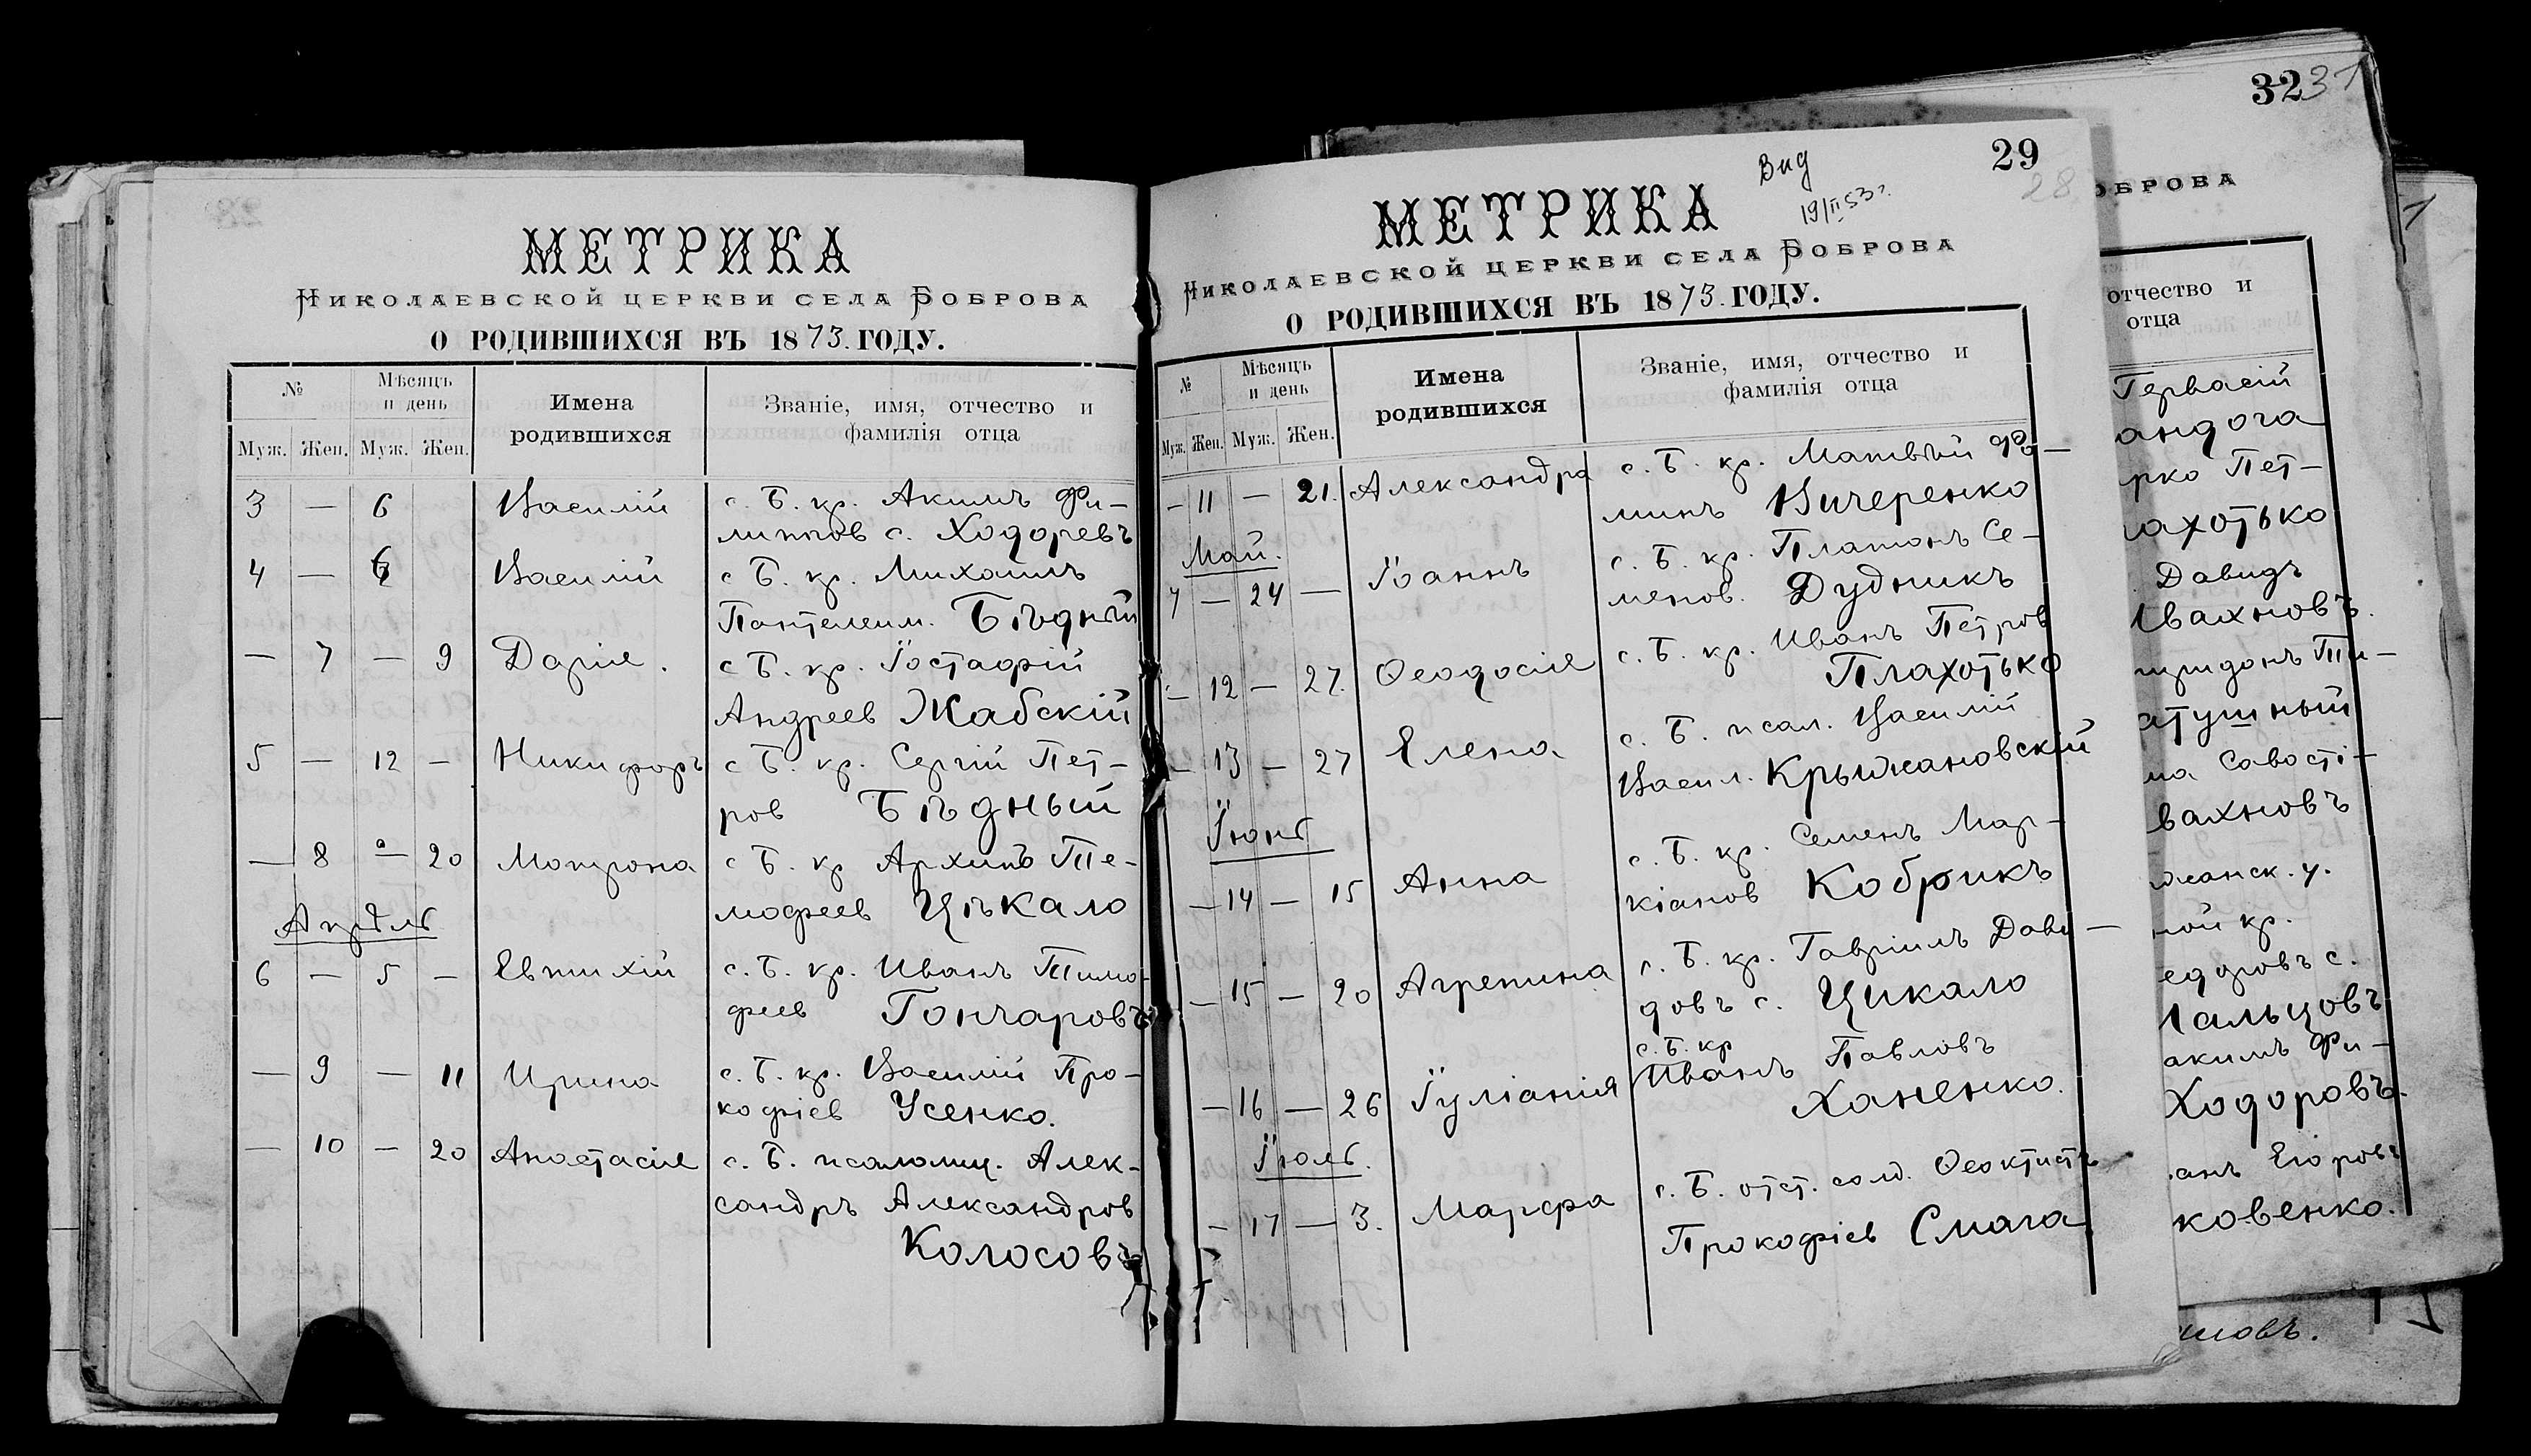 МЕТРИКА
НИКОЛАЕВСКОЙ ЦЕРКВИ СЕЛА БОБРОВА
О РОДИВШИХСЯ ВЪ 1873. ГОДУ.
№ Мѣсяцъ и день Имена родившихся Званіе, имя, отчество и фамилія отца
Муж. Жен. Муж. Жен.
3 — 6 Василій с. Б. кр. Акимъ Фи-
липпов с. Ходоревъ
4 — 6 Василій с Б. кр. Михаилъ
Пантелеим. Бѣдный
— 7 — 9 Дарія. с Б. кр. Іостафій
Андреев Жабскій
5 — 12 — Никифоръ с Б. кр. Сергій Пет-
ров Бѣдный
— 8 — 20 Матрона с Б. кр Архипъ Ти-
мофеев Цѣкало
Апрѣль
6 — 5 — Евтихій с. Б. кр. Иванъ Тимо-
феев Гончаровъ
— 9 — 11 Ирина с. Б. кр. Василій Про-
кофіев Усенко.
— 10 — 20 Анастасія с. Б. псаломщ. Алек-
сандръ Александров
Колосовъ
Вид
19/II 53 г.
29
28
МЕТРИКА
НИКОЛАЕВСКОЙ ЦЕРКВИ СЕЛА БОБРОВА
О РОДИВШИХСЯ ВЪ 1873. ГОДУ.
№ Мѣсяцъ и день Имена родившихся Званіе, имя, отчество и фамилія отца
Муж. Жен. Муж. Жен.
— 11 — 21. Александра с. Б. кр. Матвѣй Фо-
минъ Вичеренко
Май.
7 — 24 — Іоаннъ с. Б. кр. Платонъ Се-
менов. Дудникъ
— 12 — 27. Ѳеодосія с. Б. кр. Иванъ Петров
Плахотько
— 13 — 27 Елена с. Б. псал. Василій
Васил. Крыжановскій
Іюнь
— 14 — 15 Анна с. Б. кр. Семенъ Мар-
кіанов Кобрикъ
— 15 — 20 Агрепина с. Б. кр. Гавріилъ Дави-
довъ с. Цикало
— 16 — 26 Іуліанія с. Б. кр
Иванъ Павловъ
Ханенко.
Іюль.
— 17 — 3. Марфа с. Б. отст. солд. Ѳеоктистъ
Прокофіев Смага
32
31
ОБРОВА
отчество и
отца
Гервасій
андога
рко Пет-
ахотько
Давидъ
Ивахновъ.
иридонъ Ти-
атушный
ма Савасті-
вахновъ
жанск. у.
ной кр.
едоровъ с.
альцовъ
акимъ Фи-
Ходоровъ.
анъ Егоровъ
ковенко.